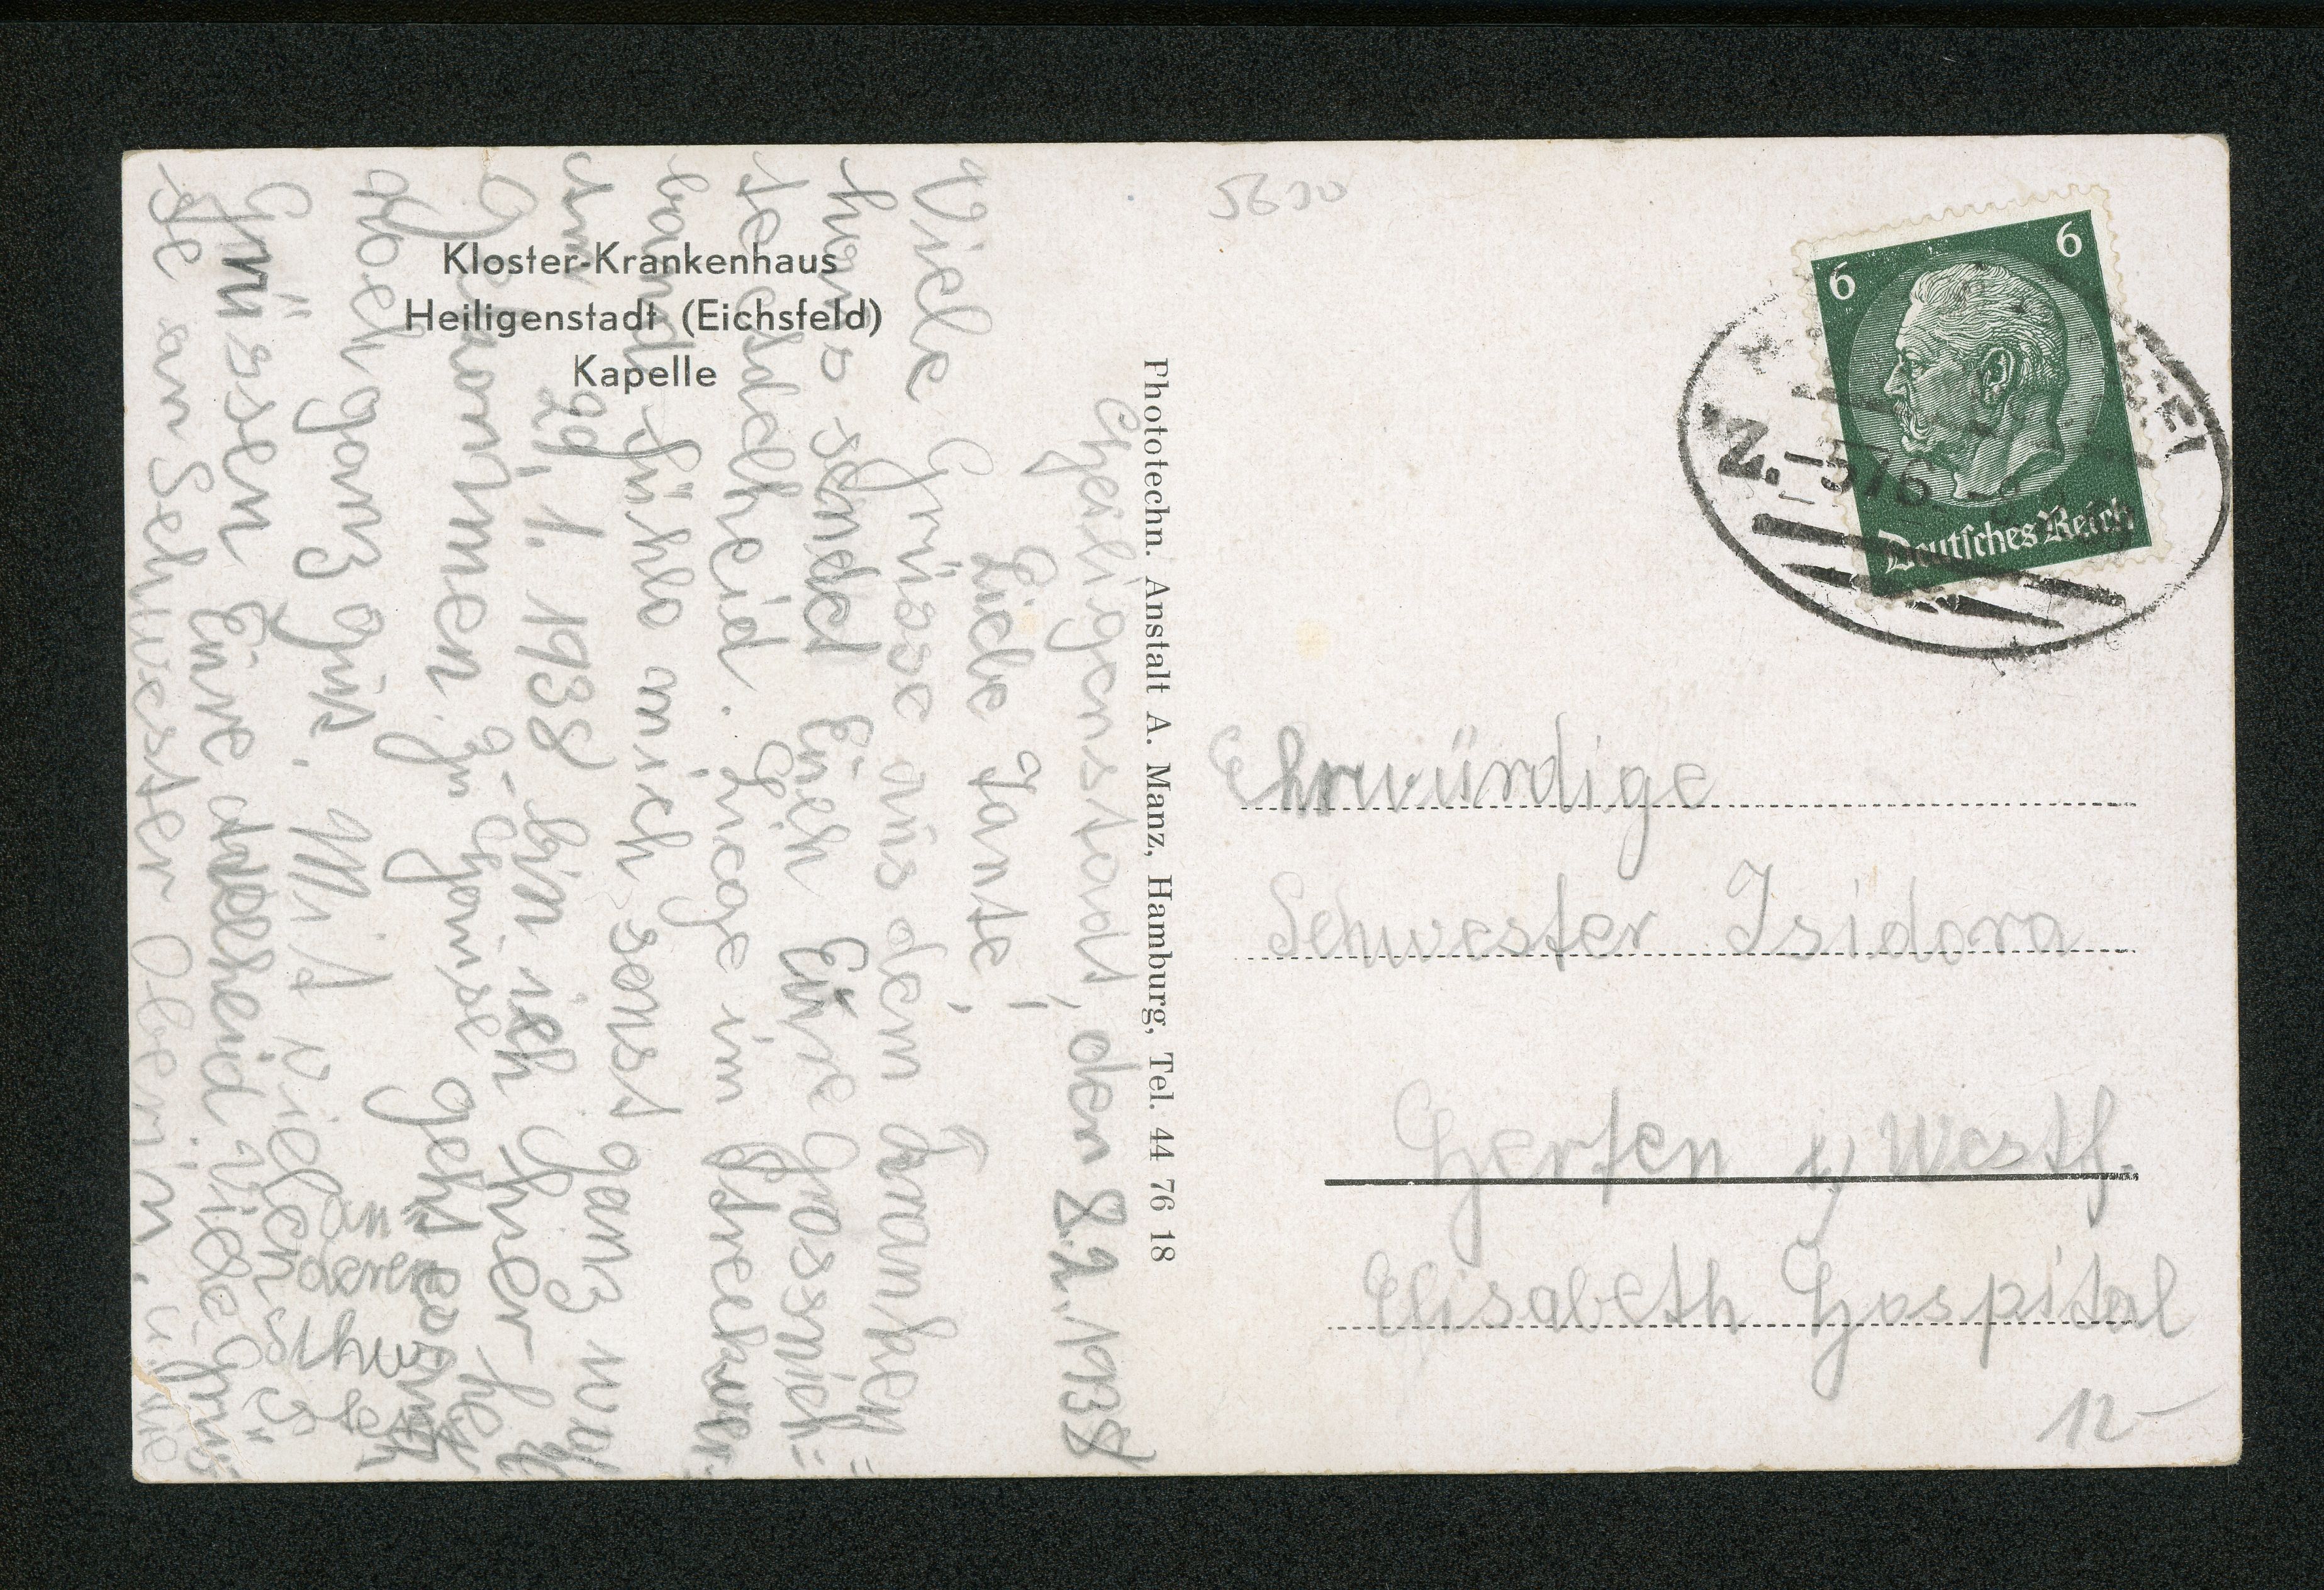 Kloster-Krankenhaus
Heiligenstadt (Eichsfeld)
Kapelle
Heiligenstadt, den 8.2.1938
Liebe Tante!
Viele Grüsse aus dem Kranken=
haus sendet Euch Eure Grossnich=
te Adelheid. Liege im Streckver-
band, fühle mich sonst ganz wohl
am 29. 1. 1938 bin ich hier her
gekommen. Zu Hause geht es
noch ganz gut. Mit vielen
Grüssen Eure Adelheid Viele Grüs-
se an Schwester Oberin. u.
an
deren
Schwest
Phototechn. Anstalt A. Manz, Hamburg, Tel. 44 76 18
5630
6 6
Deutsches Reich
Z. 576
Ehrwürdige
Schwester Isidora
Herten i/ Westf.
Elisabeth Hospital
12-